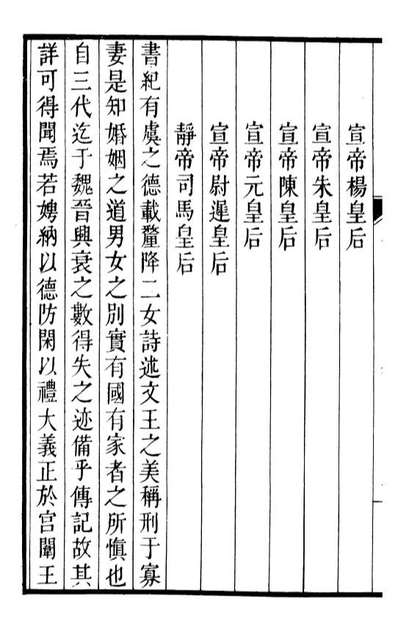 宣帝楊皇后
宣帝朱皇后
宣帝陳皇后
宣帝元皇后
宣帝尉遲皇后
靜帝司馬皇后
書紀有虞之德載釐降二女詩述文王之美稱刑于寡
妻是知婚姻之道男女之別實有國有家者之所愼也
自三代迄于魏晉興衰之數得失之迹備乎傳記故其
詳可得聞焉若娉納以德防閑以禮大義正於宫闈王